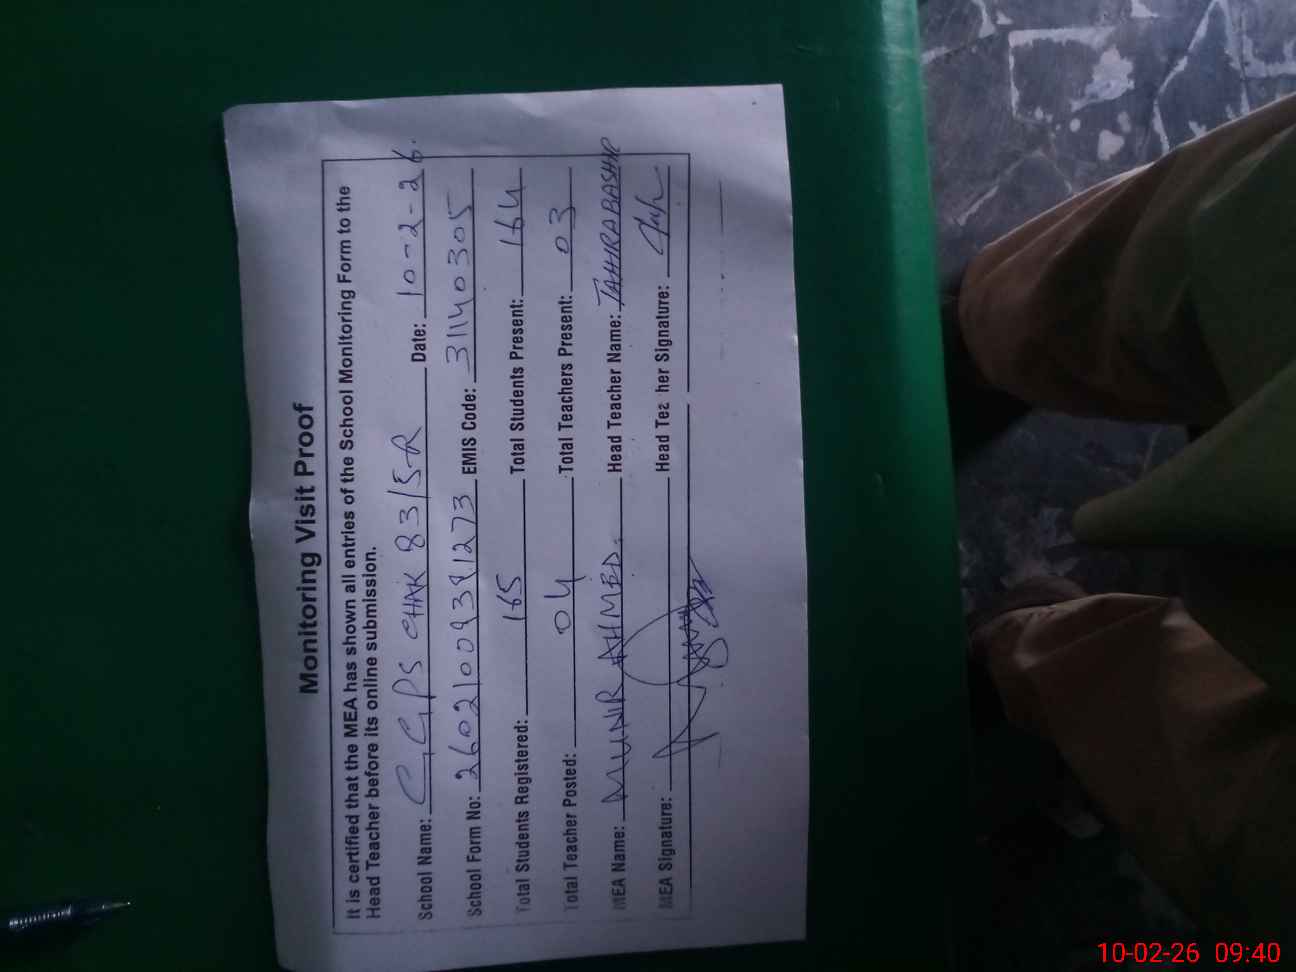 Monitoring Visit Proof
It is certified that the MEA has shown all entries of the School Monitoring Form to the
Head Teacher before its online submission.
School Name: GGPS CHAK 83/5-R Date: 10-2-26.
School Form No: 26021009391273 EMIS Code: 31140305
Total Students Registered: 165 Total Students Present: 164
Total Teacher Posted: 04 Total Teachers Present: 03
MEA Name: MUNIR AHMED. Head Teacher Name: TAHIRA BASHIR
MEA Signature: Head Teacher Signature:
10-02-26 09:40